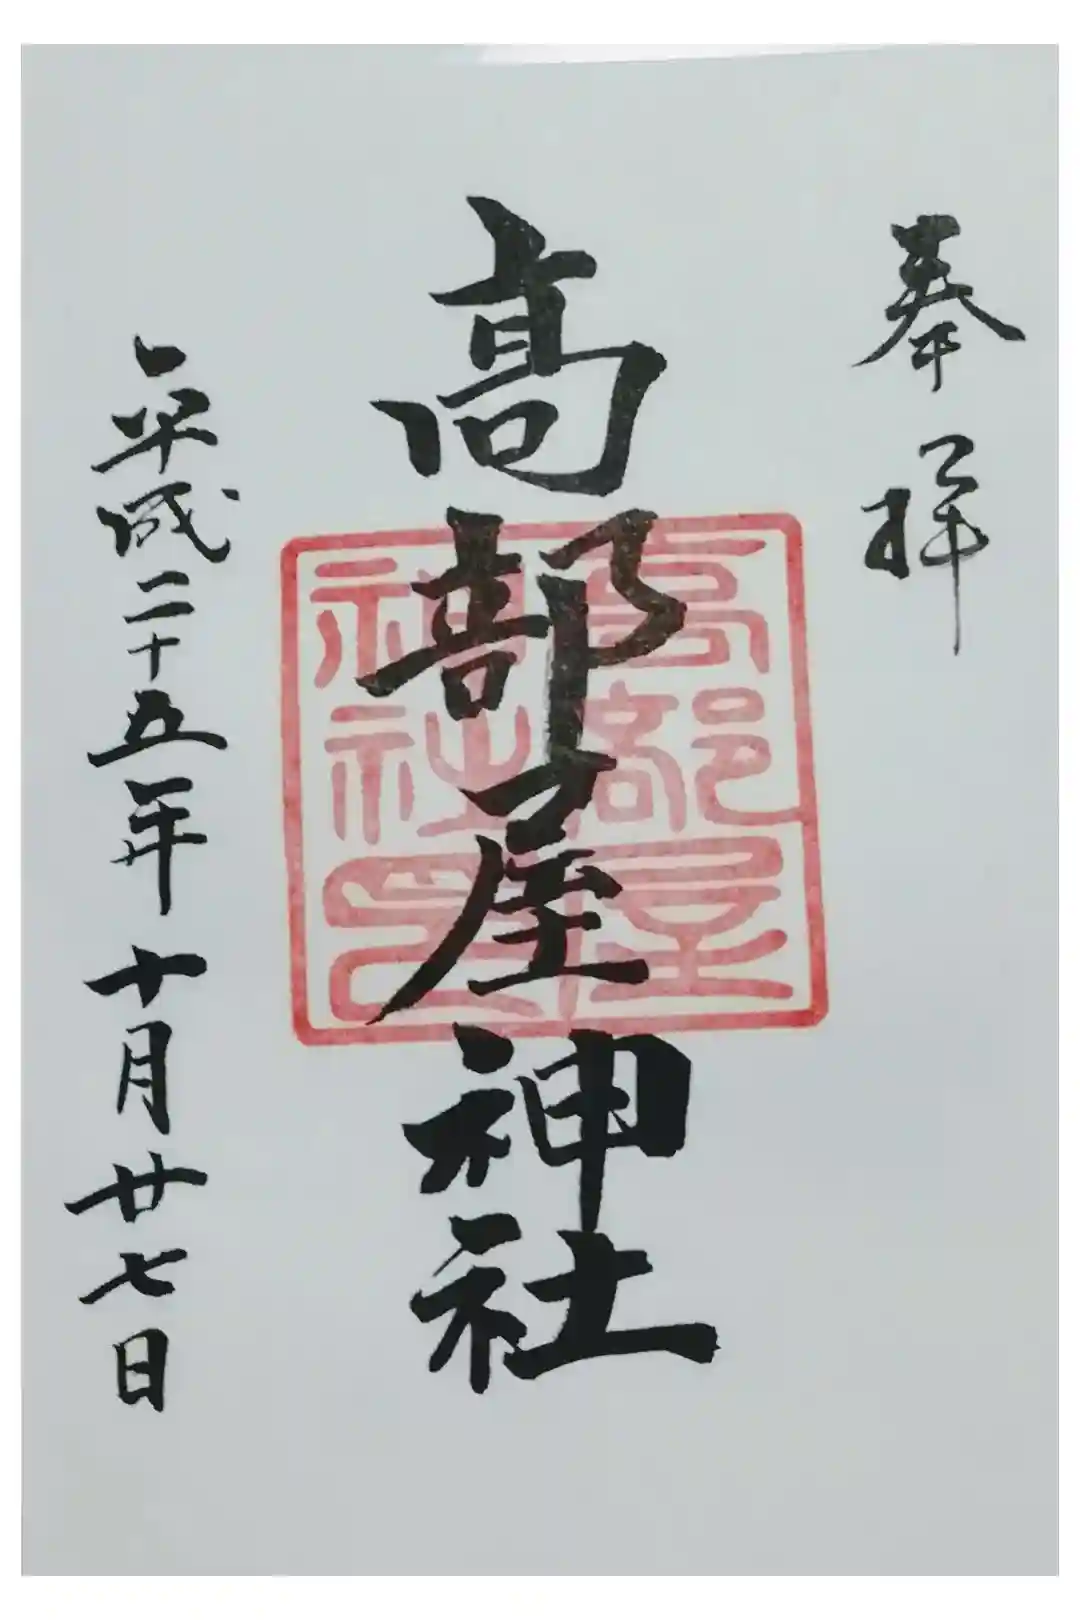 奉拝
高部屋神社
高部屋
神社之印
平成二十五年十月廿七日